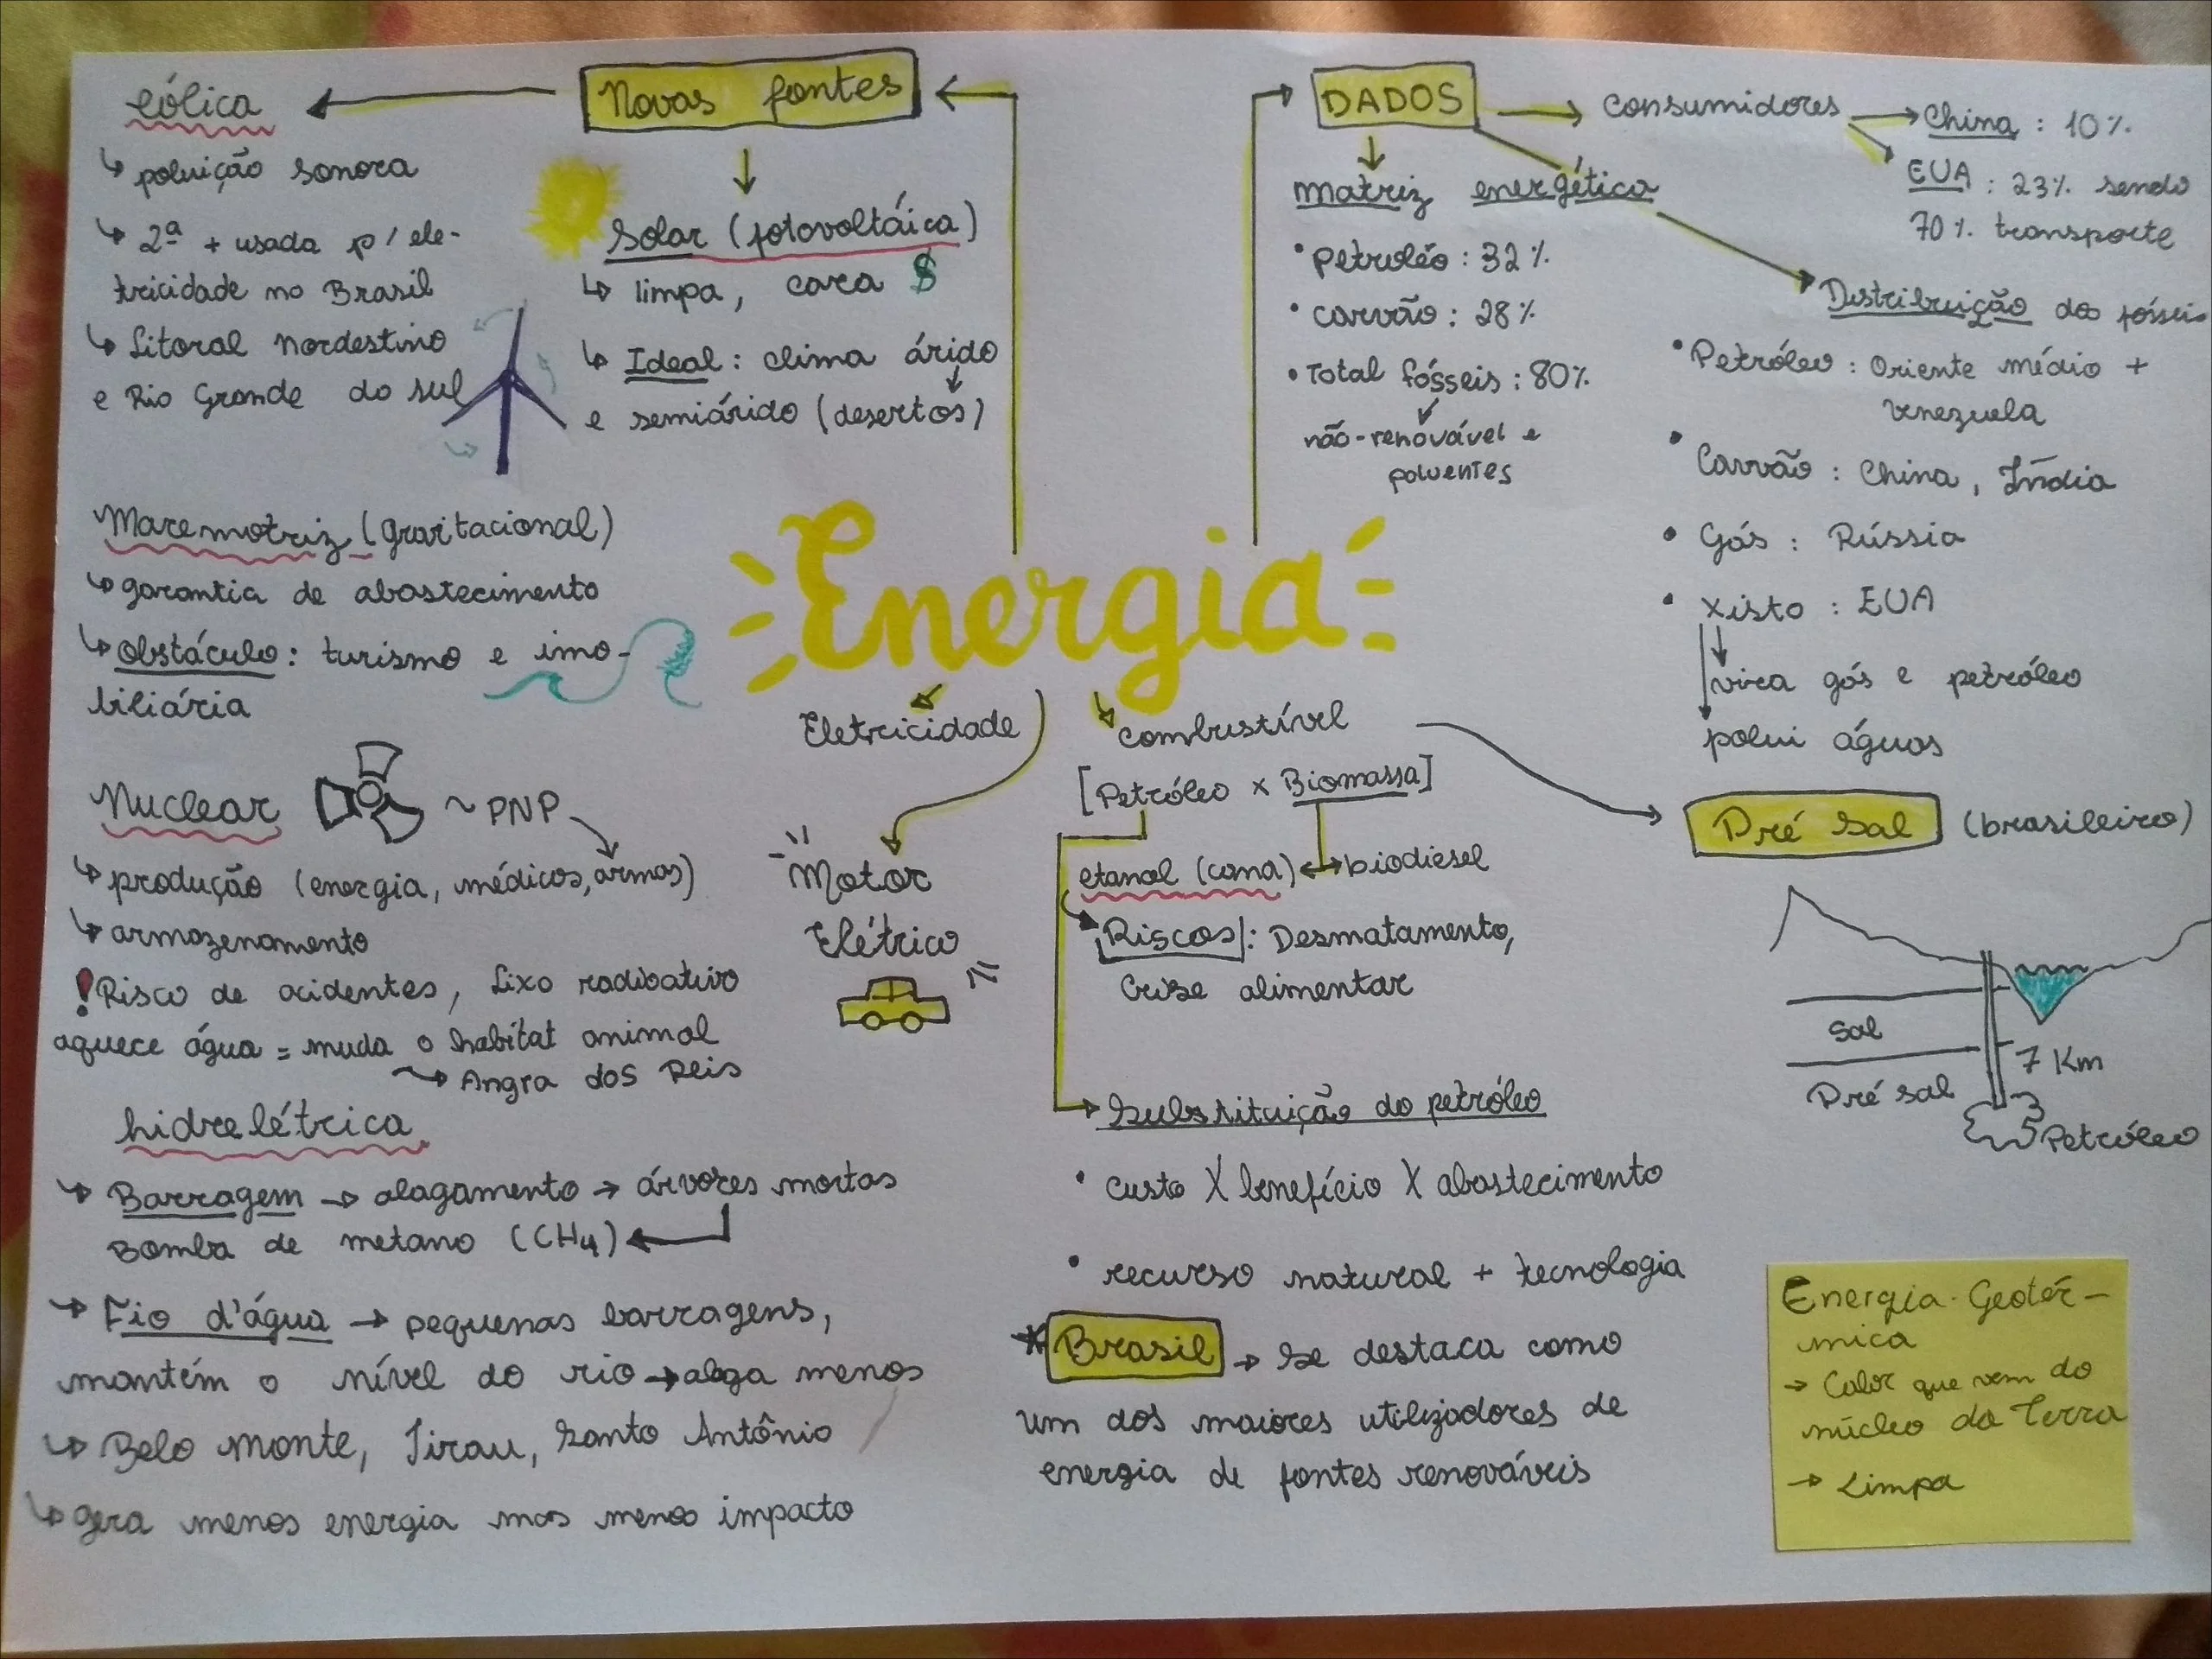 Novas fontes
eólica
↳ poluição sonora
↳ 2ª + usada p/ ele-
tricidade no Brasil
↳ Litoral nordestino
e Rio Grande do sul
Solar (fotovoltáica)
↳ limpa, cara $
↳ Ideal: clima árido
e semiárido (desertos)
Maremotriz (gravitacional)
↳ garantia de abastecimento
↳ obstáculo: turismo e imo-
biliária
Nuclear ~ PNP
↳ produção (energia, médicos, armas)
↳ armazenamento
! Risco de acidentes, Lixo radioativo
aquece água = muda o habitat animal
→ Angra dos Reis
hidrelétrica
↳ Barragem → alagamento → árvores mortas
Bomba de metano (CH4)
→ Fio d'água → pequenas barragens,
mantém o nível do rio → alaga menos
↳ Belo Monte, Jirau, Santo Antônio
↳ gera menos energia mas menos impacto
Energia
Eletricidade
Motor
Elétrico
Combustível
[Petróleo x Biomassa]
etanol (cana) ↔ biodiesel
Riscos: Desmatamento,
Crise alimentar
Substituição do petróleo
• custo X benefício X abastecimento
• recurso natural + tecnologia
* Brasil → se destaca como
um dos maiores utilizadores de
energia de fontes renováveis
DADOS → consumidores → China: 10%
EUA: 23% sendo
70% transporte
matriz energética
• Petroléo: 32%
• carvão: 28%
• Total fósseis: 80%
não-renovável e
poluentes
Distribuição dos fósseis
• Petróleo: Oriente médio +
Venezuela
• Carvão: China, Índia
• Gás: Rússia
• Xisto: EUA
vira gás e petróleo
polui águas
Pré Sal (brasileiro)
Sal
7 Km
Pré sal
Petróleo
Energia Geotér-
mica
→ Calor que vem do
núcleo da Terra
→ Limpa